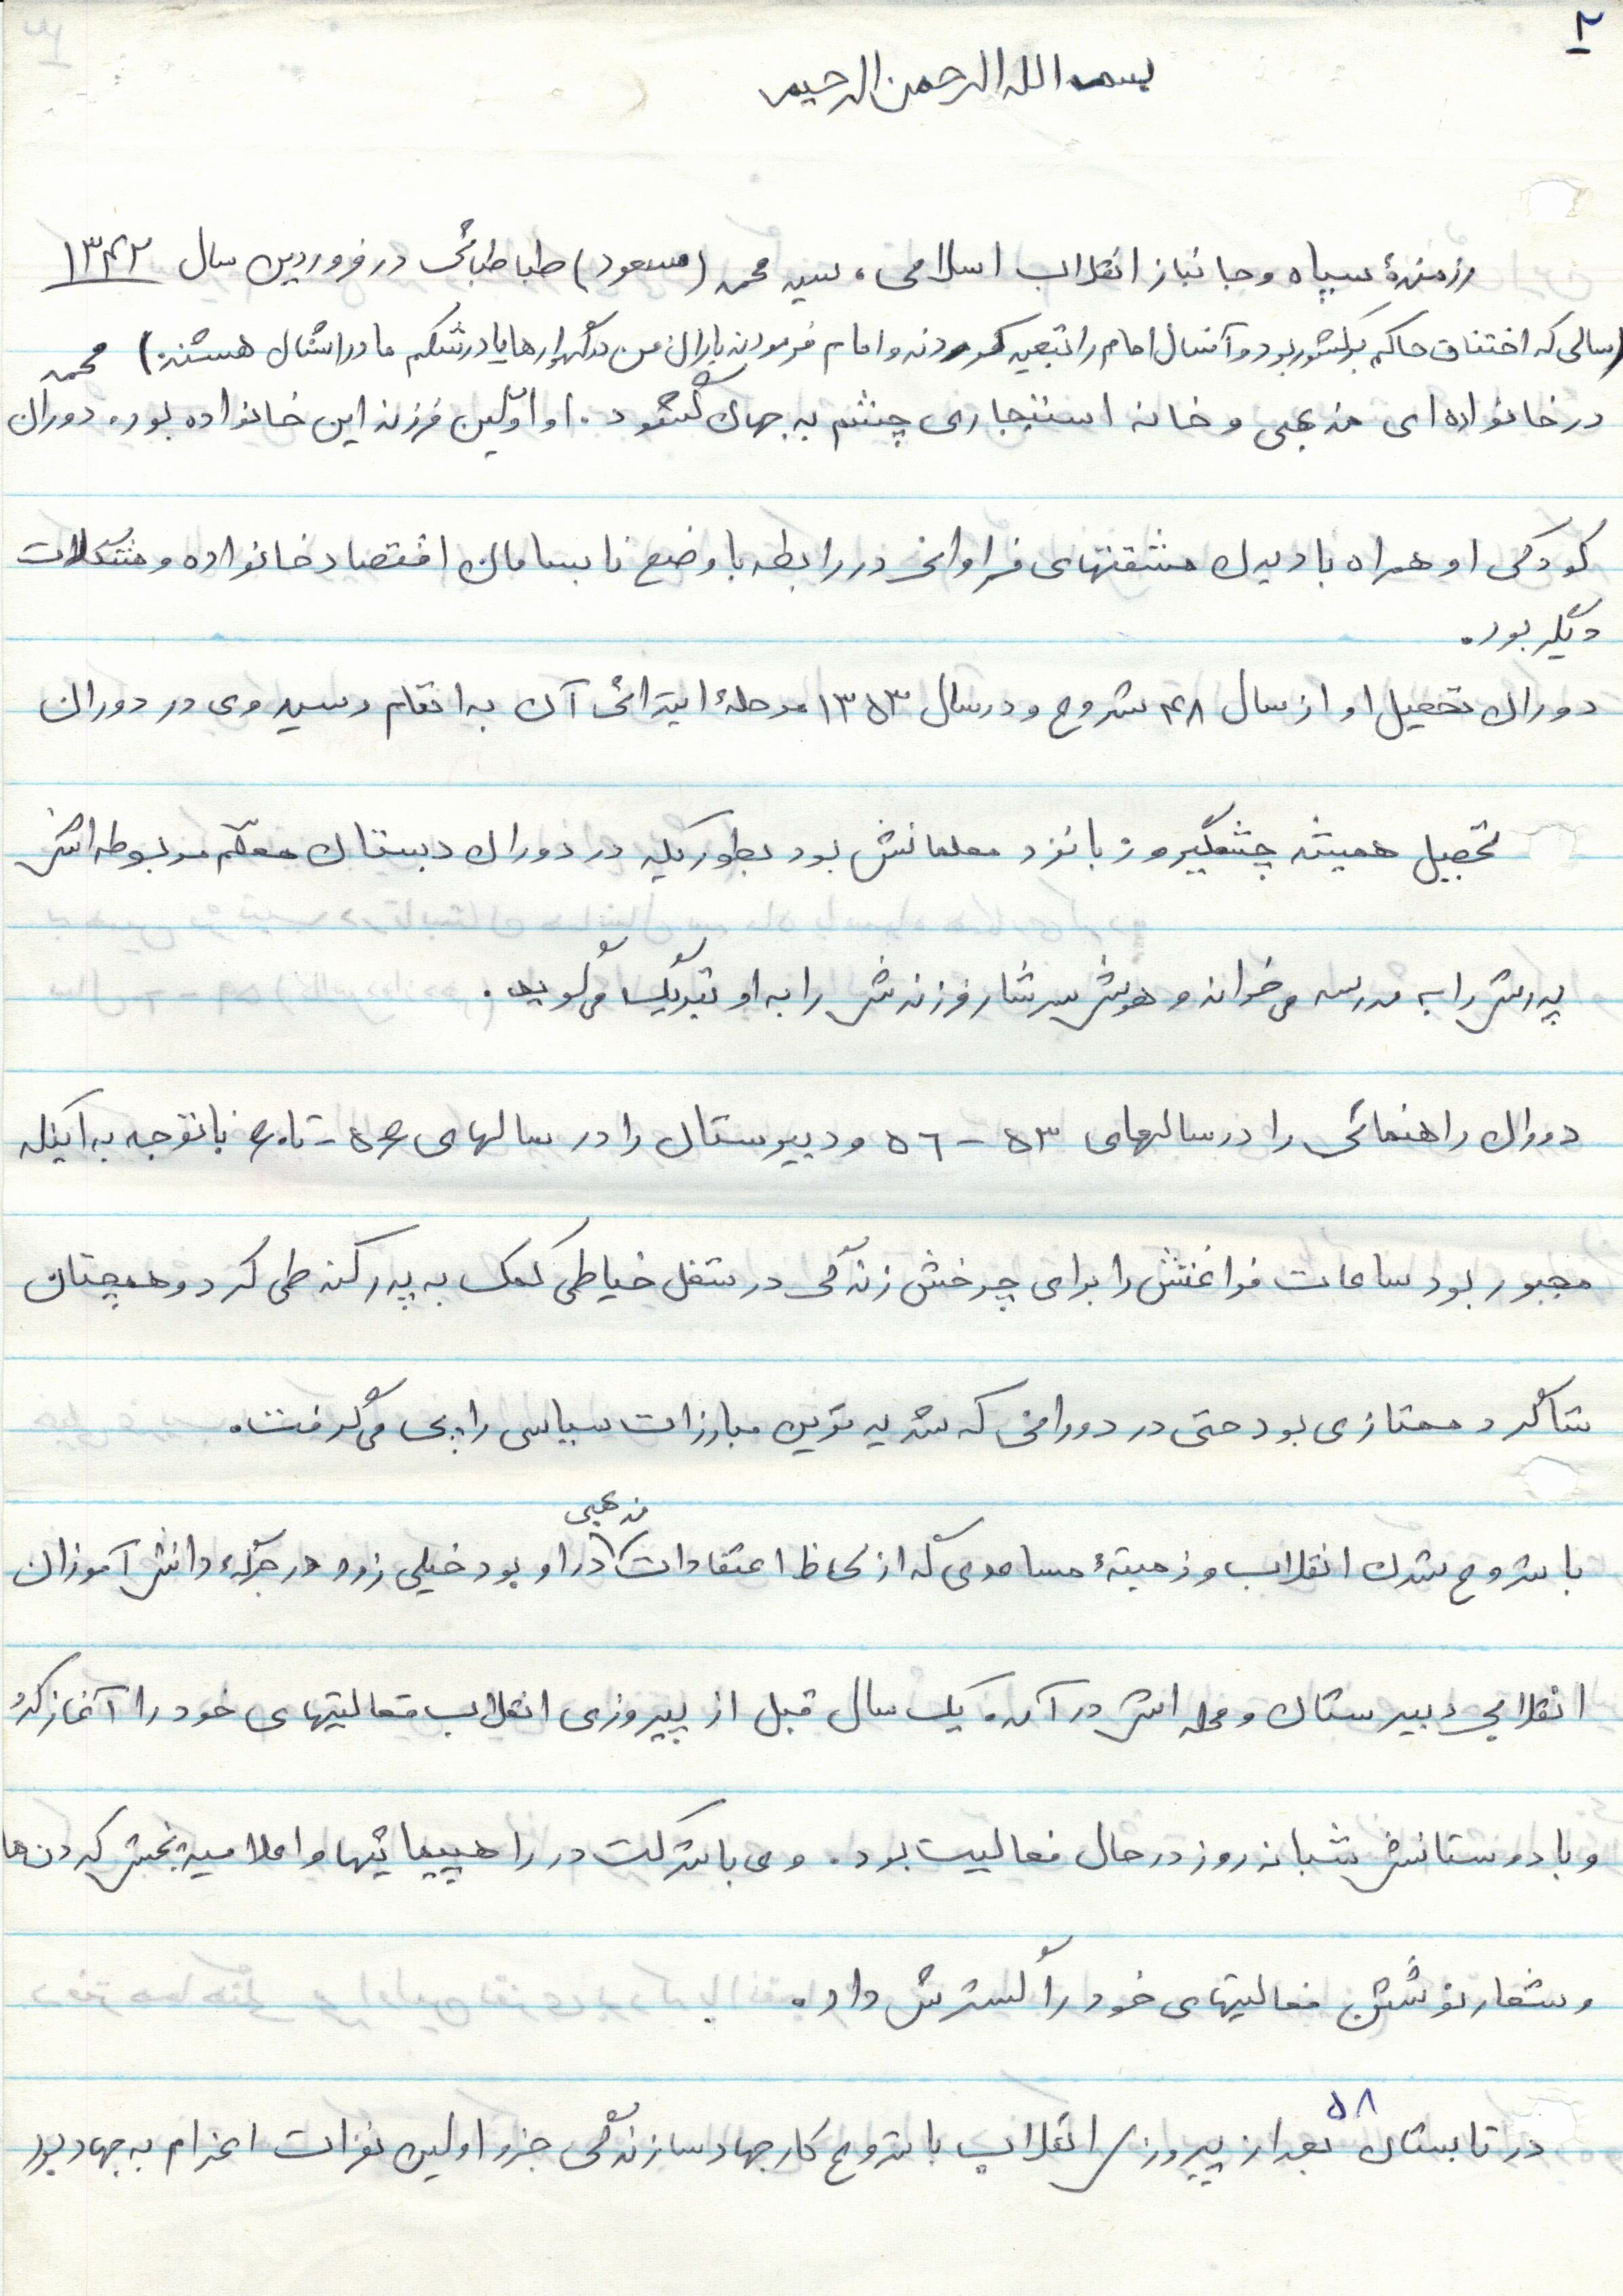 ۲
بسم الله الرحمن الرحیم
رزمندهٔ سپاه و جانباز انقلاب اسلامی، سید محمد (مسعود) طباطبائی در فروردین سال ۱۳۴۲
(سالی که اختناق حاکم بر کشور بود و آنسال امام را تبعید کردند و امام فرمودند یاران من در گهوارها یا در شکم مادراشان هستند) محمد
در خانواده‌ای مذهبی و خانه استیجاری چشم به جهان گشود. او اوّلین فرزند این خانواده بود. دوران
کودکی او همراه با دیدن مشقتهای فراوانی در رابطه با وضع نابسامان اقتصاد خانواده و مشکلات
دیگر بود.
دوران تحصیل او از سال ۴۸ شروع و در سال ۱۳۵۳ مرحلهٔ ابتدائی آن به اتمام رسید وی در دوران
تحصیل همیشه چشمگیر و زبانزد معلمانش بود بطوریکه در دوران دبستان معلّم مربوطه‌اش
پدرش را به مدرسه میخواند و هوش سرشار فرزندش را به او تبریک می‌گوید.
دوران راهنمائی را در سالهای ۵۳ – ۵۶ و دبیرستان را در سالهای ۵۶ - تا ۶۰ با توجه به اینکه
مجبور بود ساعات فراغتش را برای چرخش زندگی در شغل خیاطی کمک به پدر کند طی کرد و همچنان
شاگرد ممتازی بود حتی در دورانی که شدیدترین مبارزات سیاسی را پی می‌گرفت.
با شروع شدن انقلاب و زمینهٔ مساعدی که از لحاظ اعتقادات مذهبی در او بود خیلی زود در جرگهٔ دانش آموزان
انقلابی دبیرستان و محله اش در آمد. یک سال قبل از پیروزی انقلاب فعالیتهای خود را آغاز کرد
و با دوستانش شبانه روز در حال فعالیت بود. وی با شرکت در راهپیمائیها و اعلامیه پخش کردن‌ها
و شعار نوشتن فعالیتهای خود را گسترش داد.
در تابستان ۵۸ بعد از پیروزی انقلاب با شروع کار جهاد سازندگی جزو اولین نفرات اعزام به جهاد بود